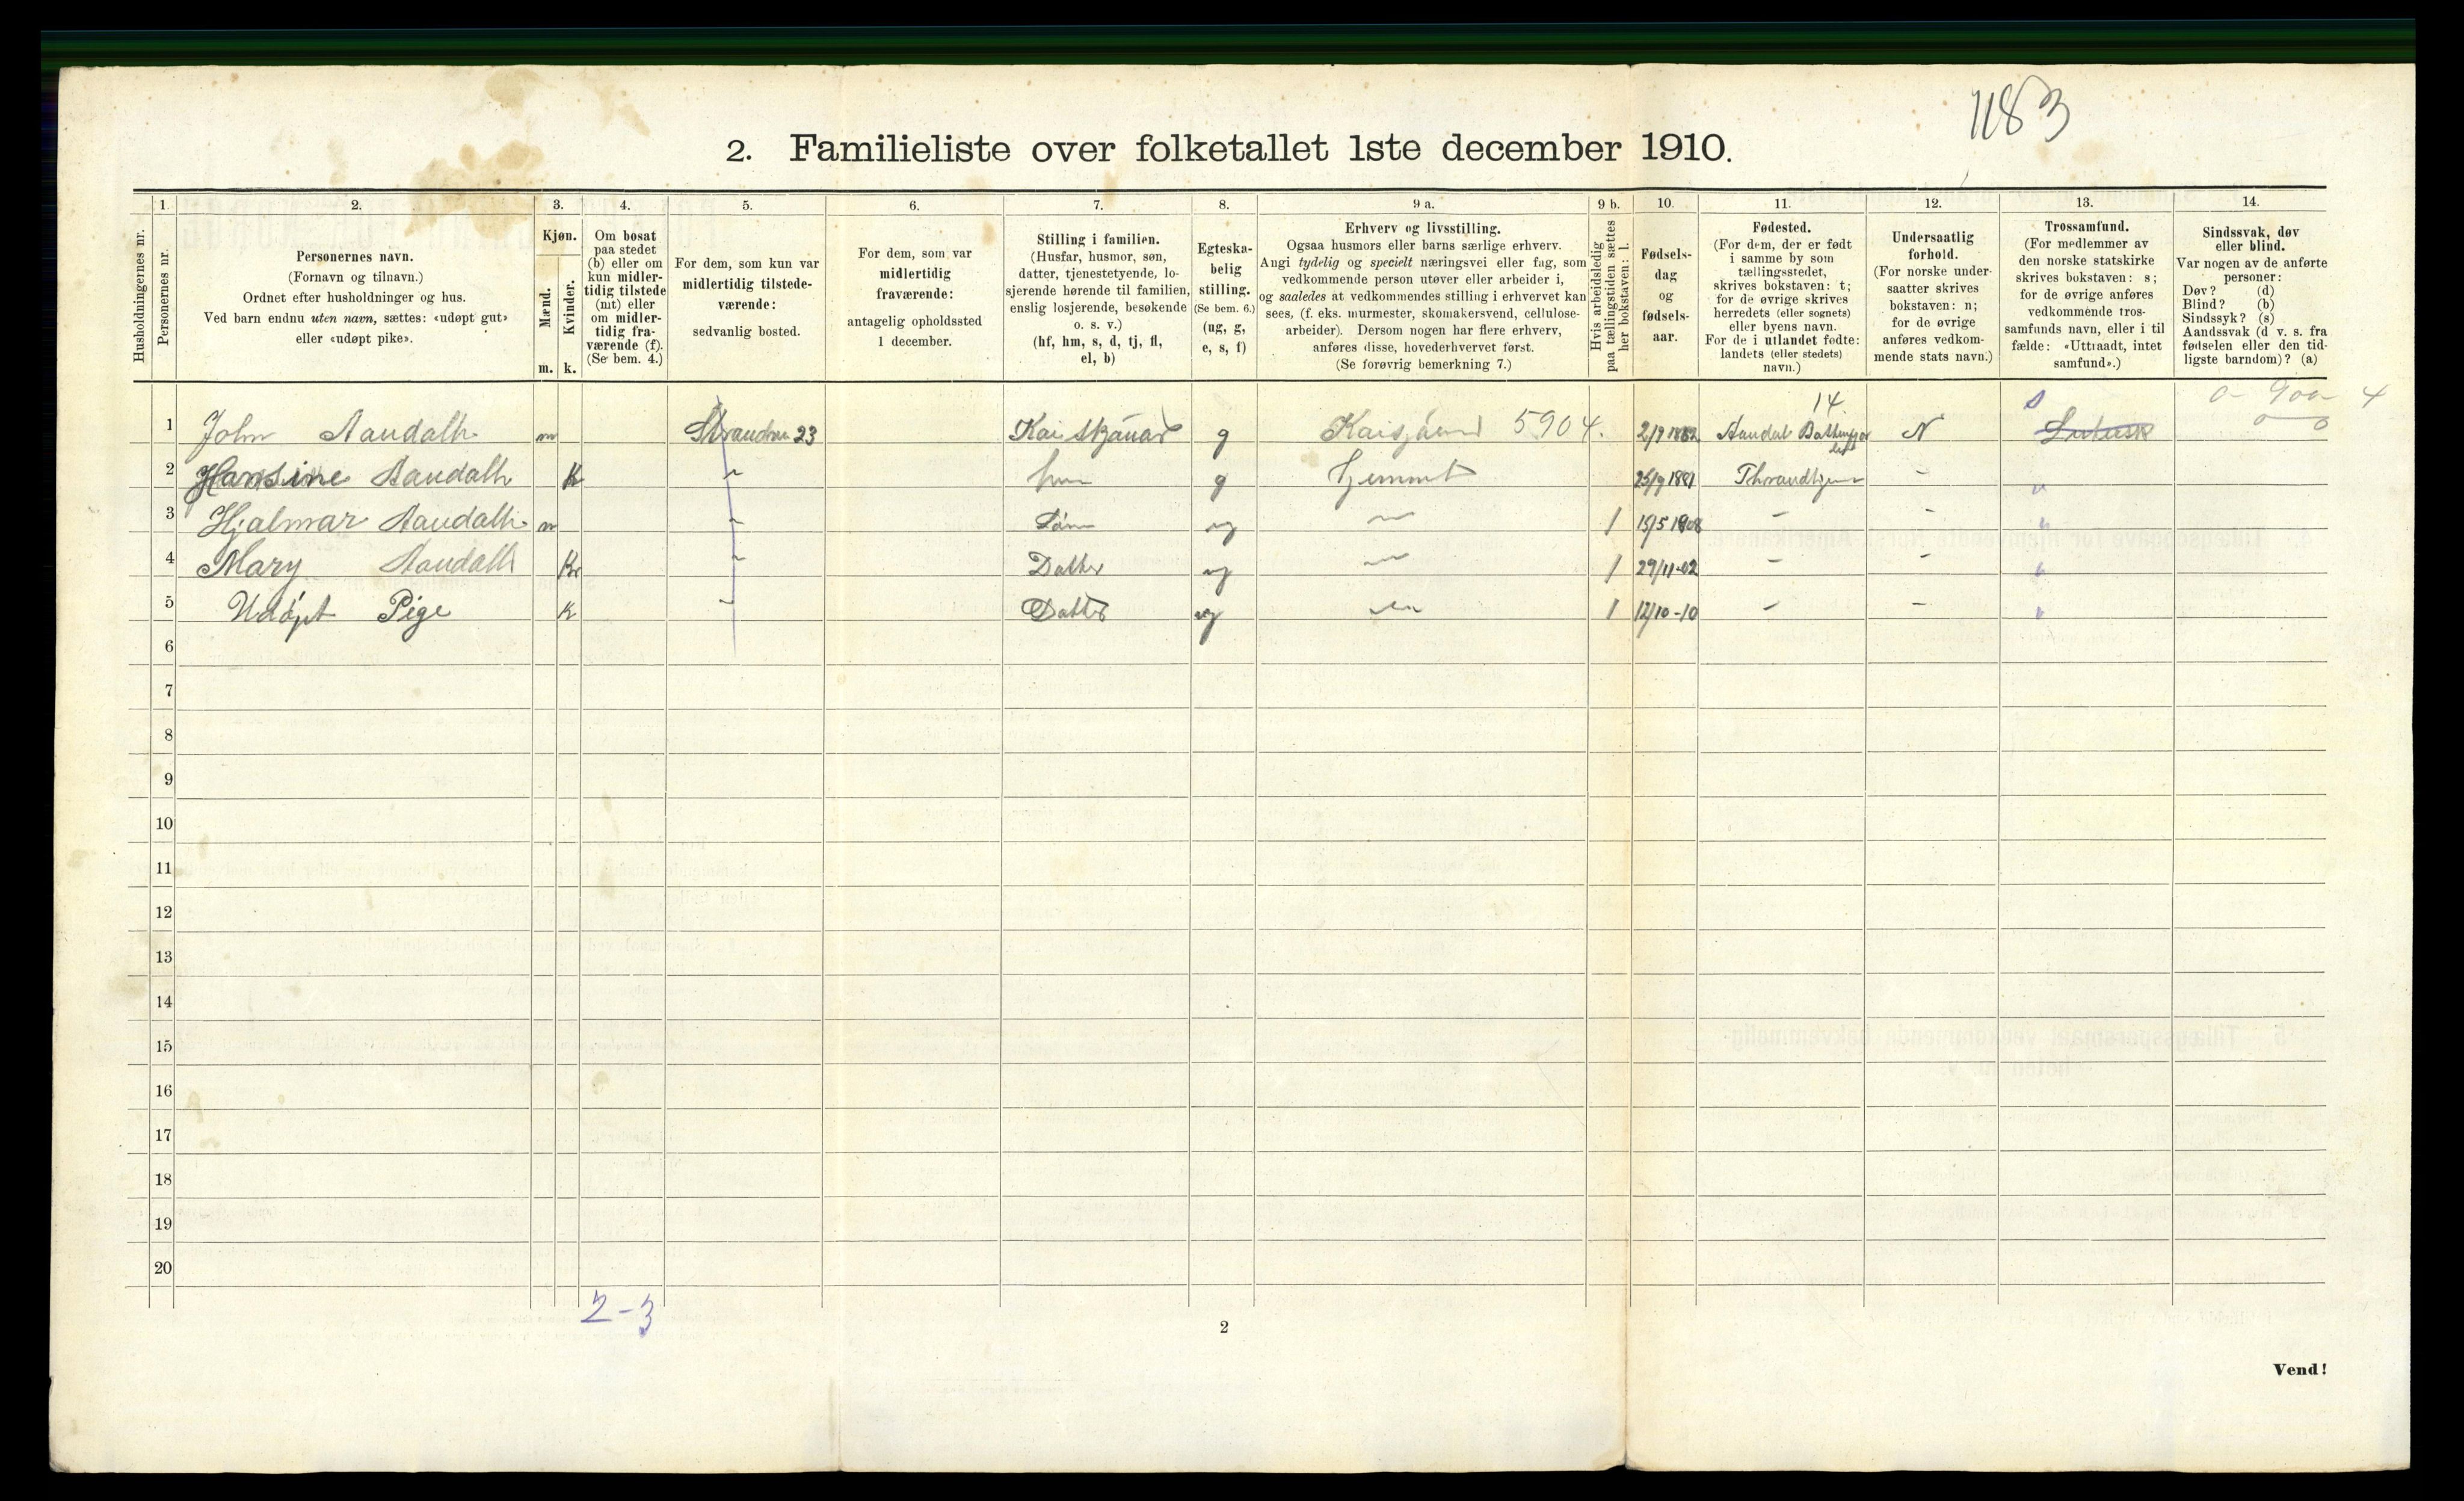 1183
2. Familieliste over folketallet 1ste december 1910.
1. 2. 3. 4. 5. 6. 7. 8. 9 a. 9 b. 10. 11. 12. 13. 14.
Husholdningernes nr.
Personernes nr.
Personernes navn.
(Fornavn og tilnavn.)
Ordnet efter husholdninger og hus.
Ved barn endnu uten navn, sættes: «udøpt gut»
eller «udøpt pike».
Kjøn.
Mænd.
Kvinder.
m. k.
Om bosat
paa stedet
(b) eller om
kun midler-
tidig tilstede
(mt) eller
om midler-
tidig fra-
værende (f).
(Se bem. 4.)
For dem, som kun var
midlertidig tilstede-
værende:
sedvanlig bosted.
For dem, som var
midlertidig
fraværende:
antagelig opholdssted
1 december.
Stilling i familien.
(Husfar, husmor, søn,
datter, tjenestetyende, lo-
sjerende hørende til familien,
enslig losjerende, besøkende
o. s. v.)
(hf, hm, s, d, tj, fl,
el, b)
Egteska-
belig
stilling.
(Se bem. 6.)
(ug, g,
e, s, f)
Erhverv og livsstilling.
Ogsaa husmors eller barns særlige erhverv.
Angi tydelig og specielt næringsvei eller fag, som
vedkommende person utøver eller arbeider i,
og saaledes at vedkommendes stilling i erhvervet kan
sees, (f. eks. murmester, skomakersvend, cellulose-
arbeider). Dersom nogen har flere erhverv,
anføres disse, hovederhvervet først.
(Se forøvrig bemerkning 7.)
Hvis arbeidsledig
paa tællingstiden sættes
her bokstaven: l.
Fødsels-
dag
og
fødsels-
aar.
Fødested.
(For dem, der er født
i samme by som
tællingsstedet,
skrives bokstaven: t;
for de øvrige skrives
herredets (eller sognets)
eller byens navn.
For de i utlandet fødte:
landets (eller stedets)
navn.)
Undersaatlig
forhold.
(For norske under-
saatter skrives
bokstaven: n;
for de øvrige
anføres vedkom-
mende stats navn.)
Trossamfund.
(For medlemmer av
den norske statskirke
skrives bokstaven: s;
for de øvrige anføres
vedkommende tros-
samfunds navn, eller i til
fælde: «Uttraadt, intet
samfund».)
Sindssvak, døv
eller blind.
Var nogen av de anførte
personer:
Døv? (d)
Blind? (b)
Sindssyk? (s)
Aandssvak (d v. s. fra
fødselen eller den tid-
ligste barndom)? (a)
14 s 0 - 900 - 4
1 John Aandalh m 23 g 5904. 2/9 1882 Aandal N
2 Hansine Aandalh K " g Hjemmet 25/9 1881 Throndhjem - "
3 Hjalmar Aandalh m " Søn ug " / 15/5 1908 - - "
4 Mary Aandalh K " Datter ug " / 29/11-02 - - "
5 Udøpt Pige K " Datter ug " / 12/10-10 - - "
6
7
8
9
10
11
12
13
14
15
16
17
18
19
20
2-3
2
Vend!